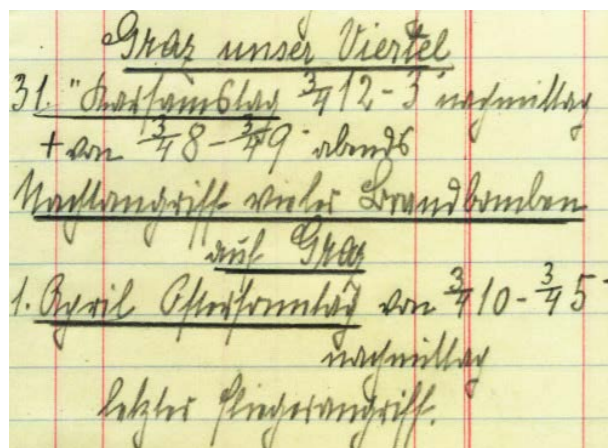 Graz unser Viertel
31. " Karsamstag 3/4 12 - 3 nachmittag
+ von 3/4 8 - 3/4 9 abends
Nachtangriff vieler Brandbomben
auf Graz
1. April Ostersonntag von 3/4 10 - 3/4 5
nachmittag
letzter Fliegerangriff.